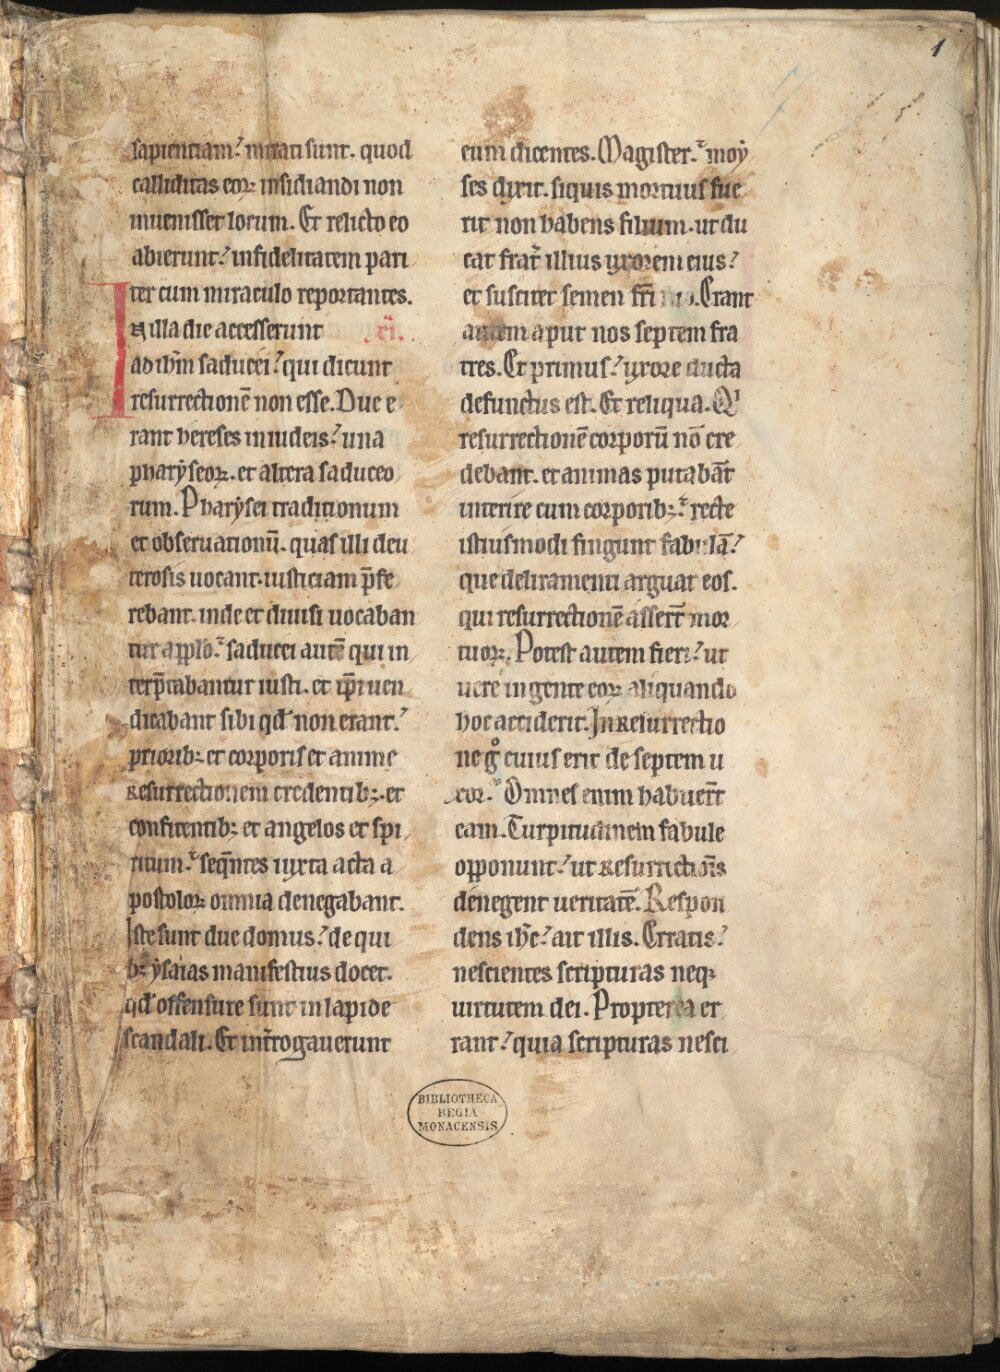 1
sapientiam? mirati sunt. quod
calliditas eoꝝ insidiandi non
inuenisset locum. Et relicto eo
abierunt? infidelitatem pari
ter cum miraculo reportantes.
In illa die accesserunt
ad ihm̄ saducei? qui dicunt
resurrectionē non esse. Due e
rant hereses in iudeis? una
pharẏseoꝝ. et altera saduceo
rum. Pharẏsei traditionum
et obseruationū. quas illi deu
terosis uocant. iusticiam p̄fe
rebant. inde et diuisi uocaban
tur a pp̄lo. saducei autē qui in
terp̄tabantur iusti. et ip̄i uen
dicabant sibi qd̓ non erant?
priorib; et corporis et anime
Resurrectionem credentib;. et
confitentib; et angelos et spi
ritum. seq̄ntes iuxta acta a
postoloꝝ omnia denegabant.
Iste sunt due domus? de qui
b; ẏsaias manifestius docet.
qd̓ offensure sunt in lapide
scandali. Et int̄rogauerunt
eum dicentes. Magister. moẏ
ses dixit. siquis mortuus fue
rit non habens filium. ut du
cat frat̄ illius uxorem eius?
et suscitet semen fr̄i suo. Erant
autem aput nos septem fra
tres. Et primus? uxore ducta
defunctus est. Et reliqua. Qi
resurrectionē corporū nō cre
debant. et animas putabāt
interire cum corporib; recte
istiusmodi fingunt fabulā?
que deliramenti arguat eos.
qui resurrectionē asserūt mor
tuoꝝ. Potest autem fieri? ut
uere in gente eoꝝ aliquando
hoc acciderit. In Resurrectio
ne gͦ cuius erit de septem u
xor. Omnes enim habuer̄t
eam. Turpitudinem fabule
opponunt? ut Resurrectiōis
denegent ueritatē. Respon
dens ihc̄? ait illis. Erratis?
nescientes scripturas neqꝫ
uirtutem dei. Propterea er
rant? quia scripturas nesci
BIBLIOTHECA
REGIA
MONACENSIS